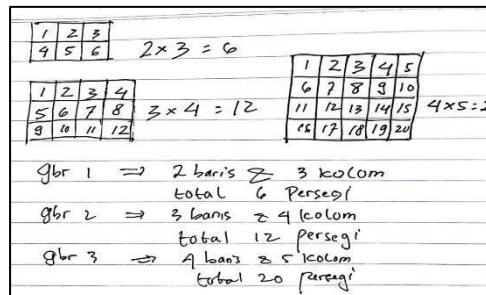 1 2 3
4 5 6
2 x 3 = 6
1 2 3 4
5 6 7 8
9 10 11 12
3 x 4 = 12
1 2 3 4 5
6 7 8 9 10
11 12 13 14 15
16 17 18 19 20
4 x 5 = 2
gbr 1 => 2 baris & 3 kolom
total 6 Persegi
gbr 2 => 3 baris & 4 kolom
total 12 persegi
gbr 3 => 4 baris & 5 kolom
total 20 persegi